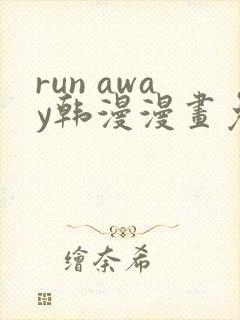 run awa
y韩漫漫畫免
繪奈希